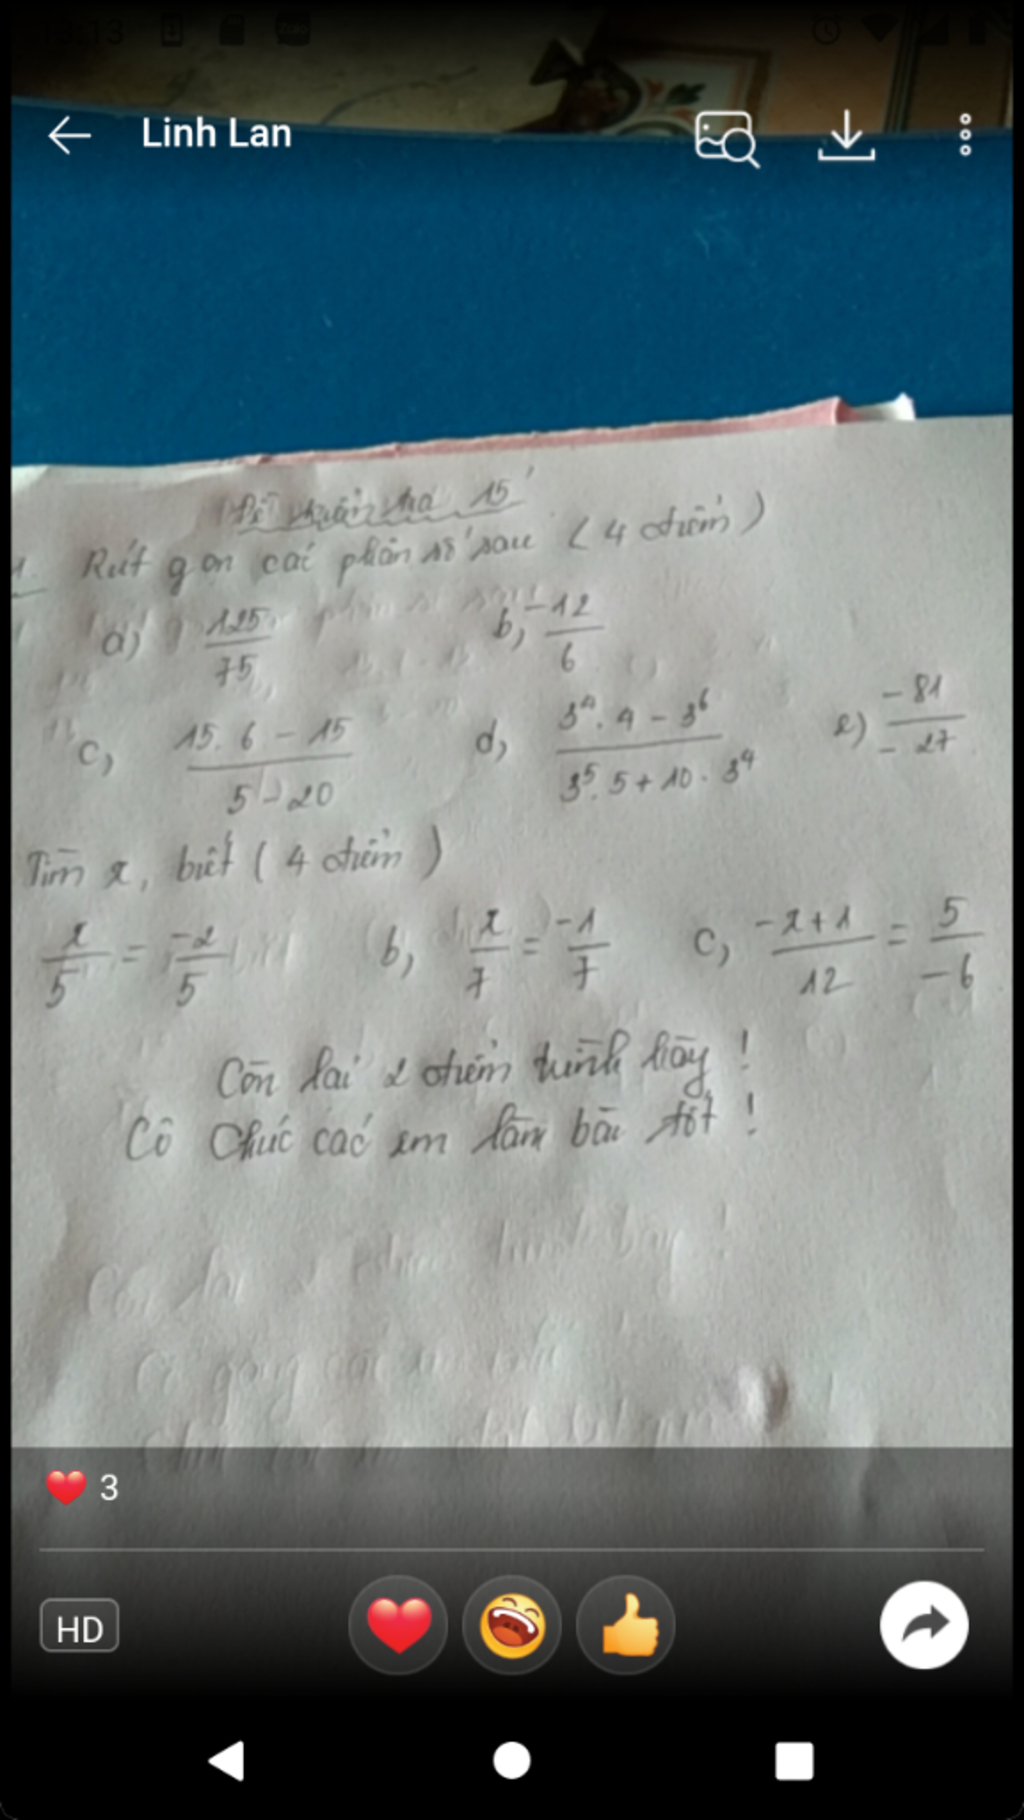 Linh Lan
Đề kiểm tra 15'
1. Rút gọn các phân số sau (4 điểm)
a) 125/75 b, -12/6
c, 15.6 - 15 / 5 - 20 d, 3⁴.4 - 3⁶ / 3⁵.5 + 10.3⁴ e) -81/-27
Tìm x, biết (4 điểm)
x/5 = -2/5 b, x/7 = -1/7 c, -x+1/12 = 5/-6
Còn lại 2 điểm trình bày!
Cô chúc các em làm bài tốt!
3
HD